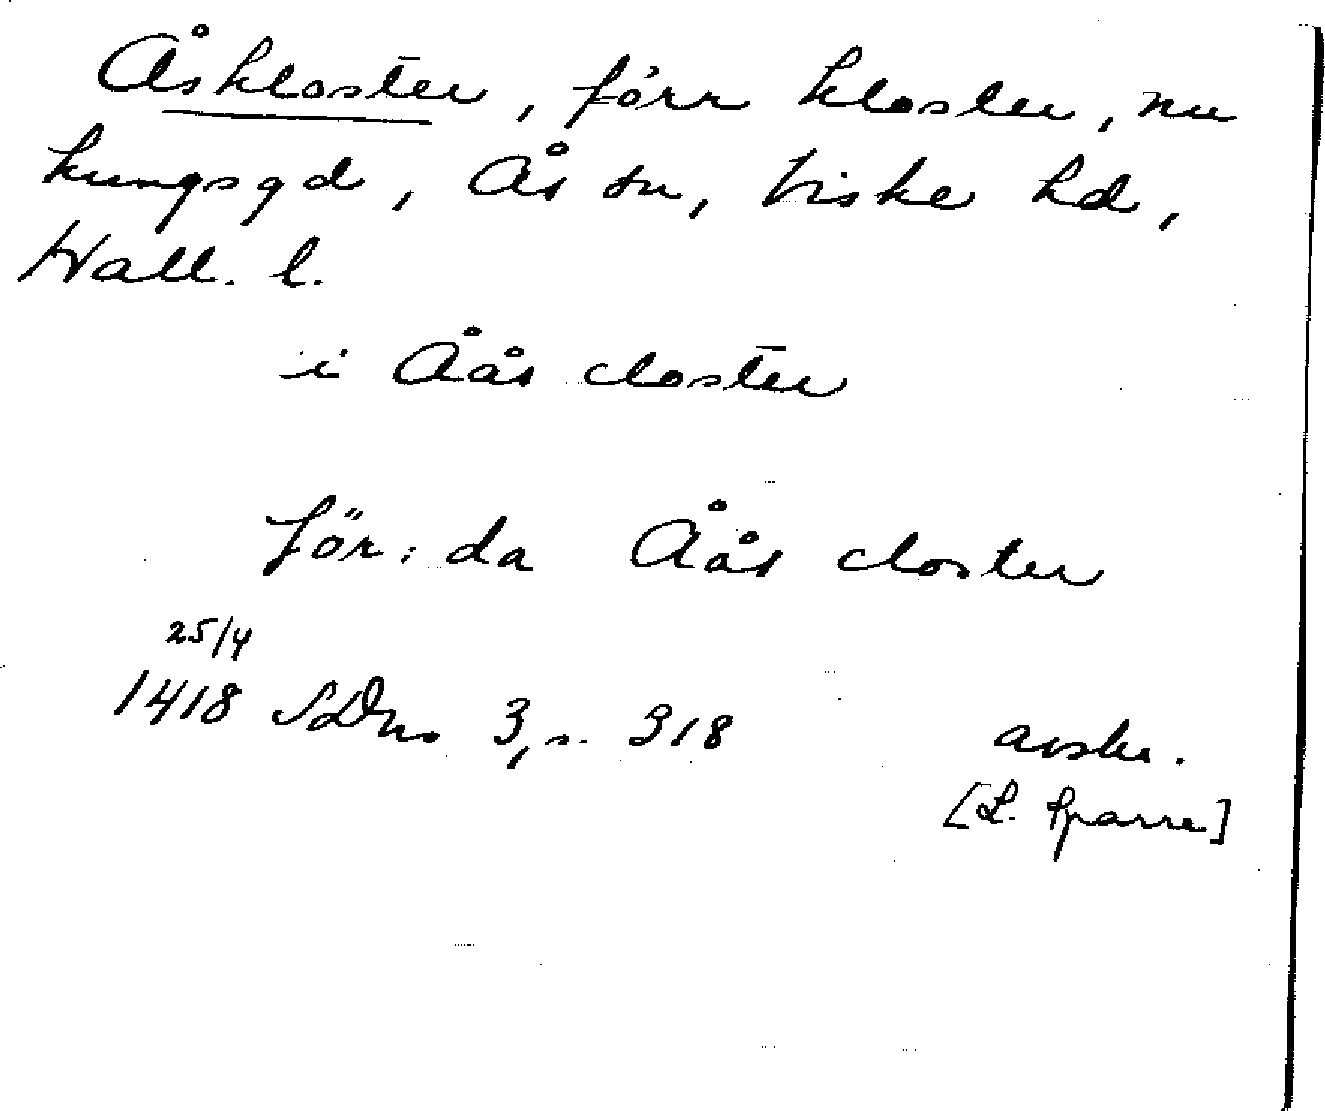 Åskloster, förr kloster, nu
kungsgd, Ås sn, Viske hd,
Hall. l.
i Åås closter
för: da Åås closter
25/4
1418 SDns 3, s. 318 avskr.
[L. Sparre]